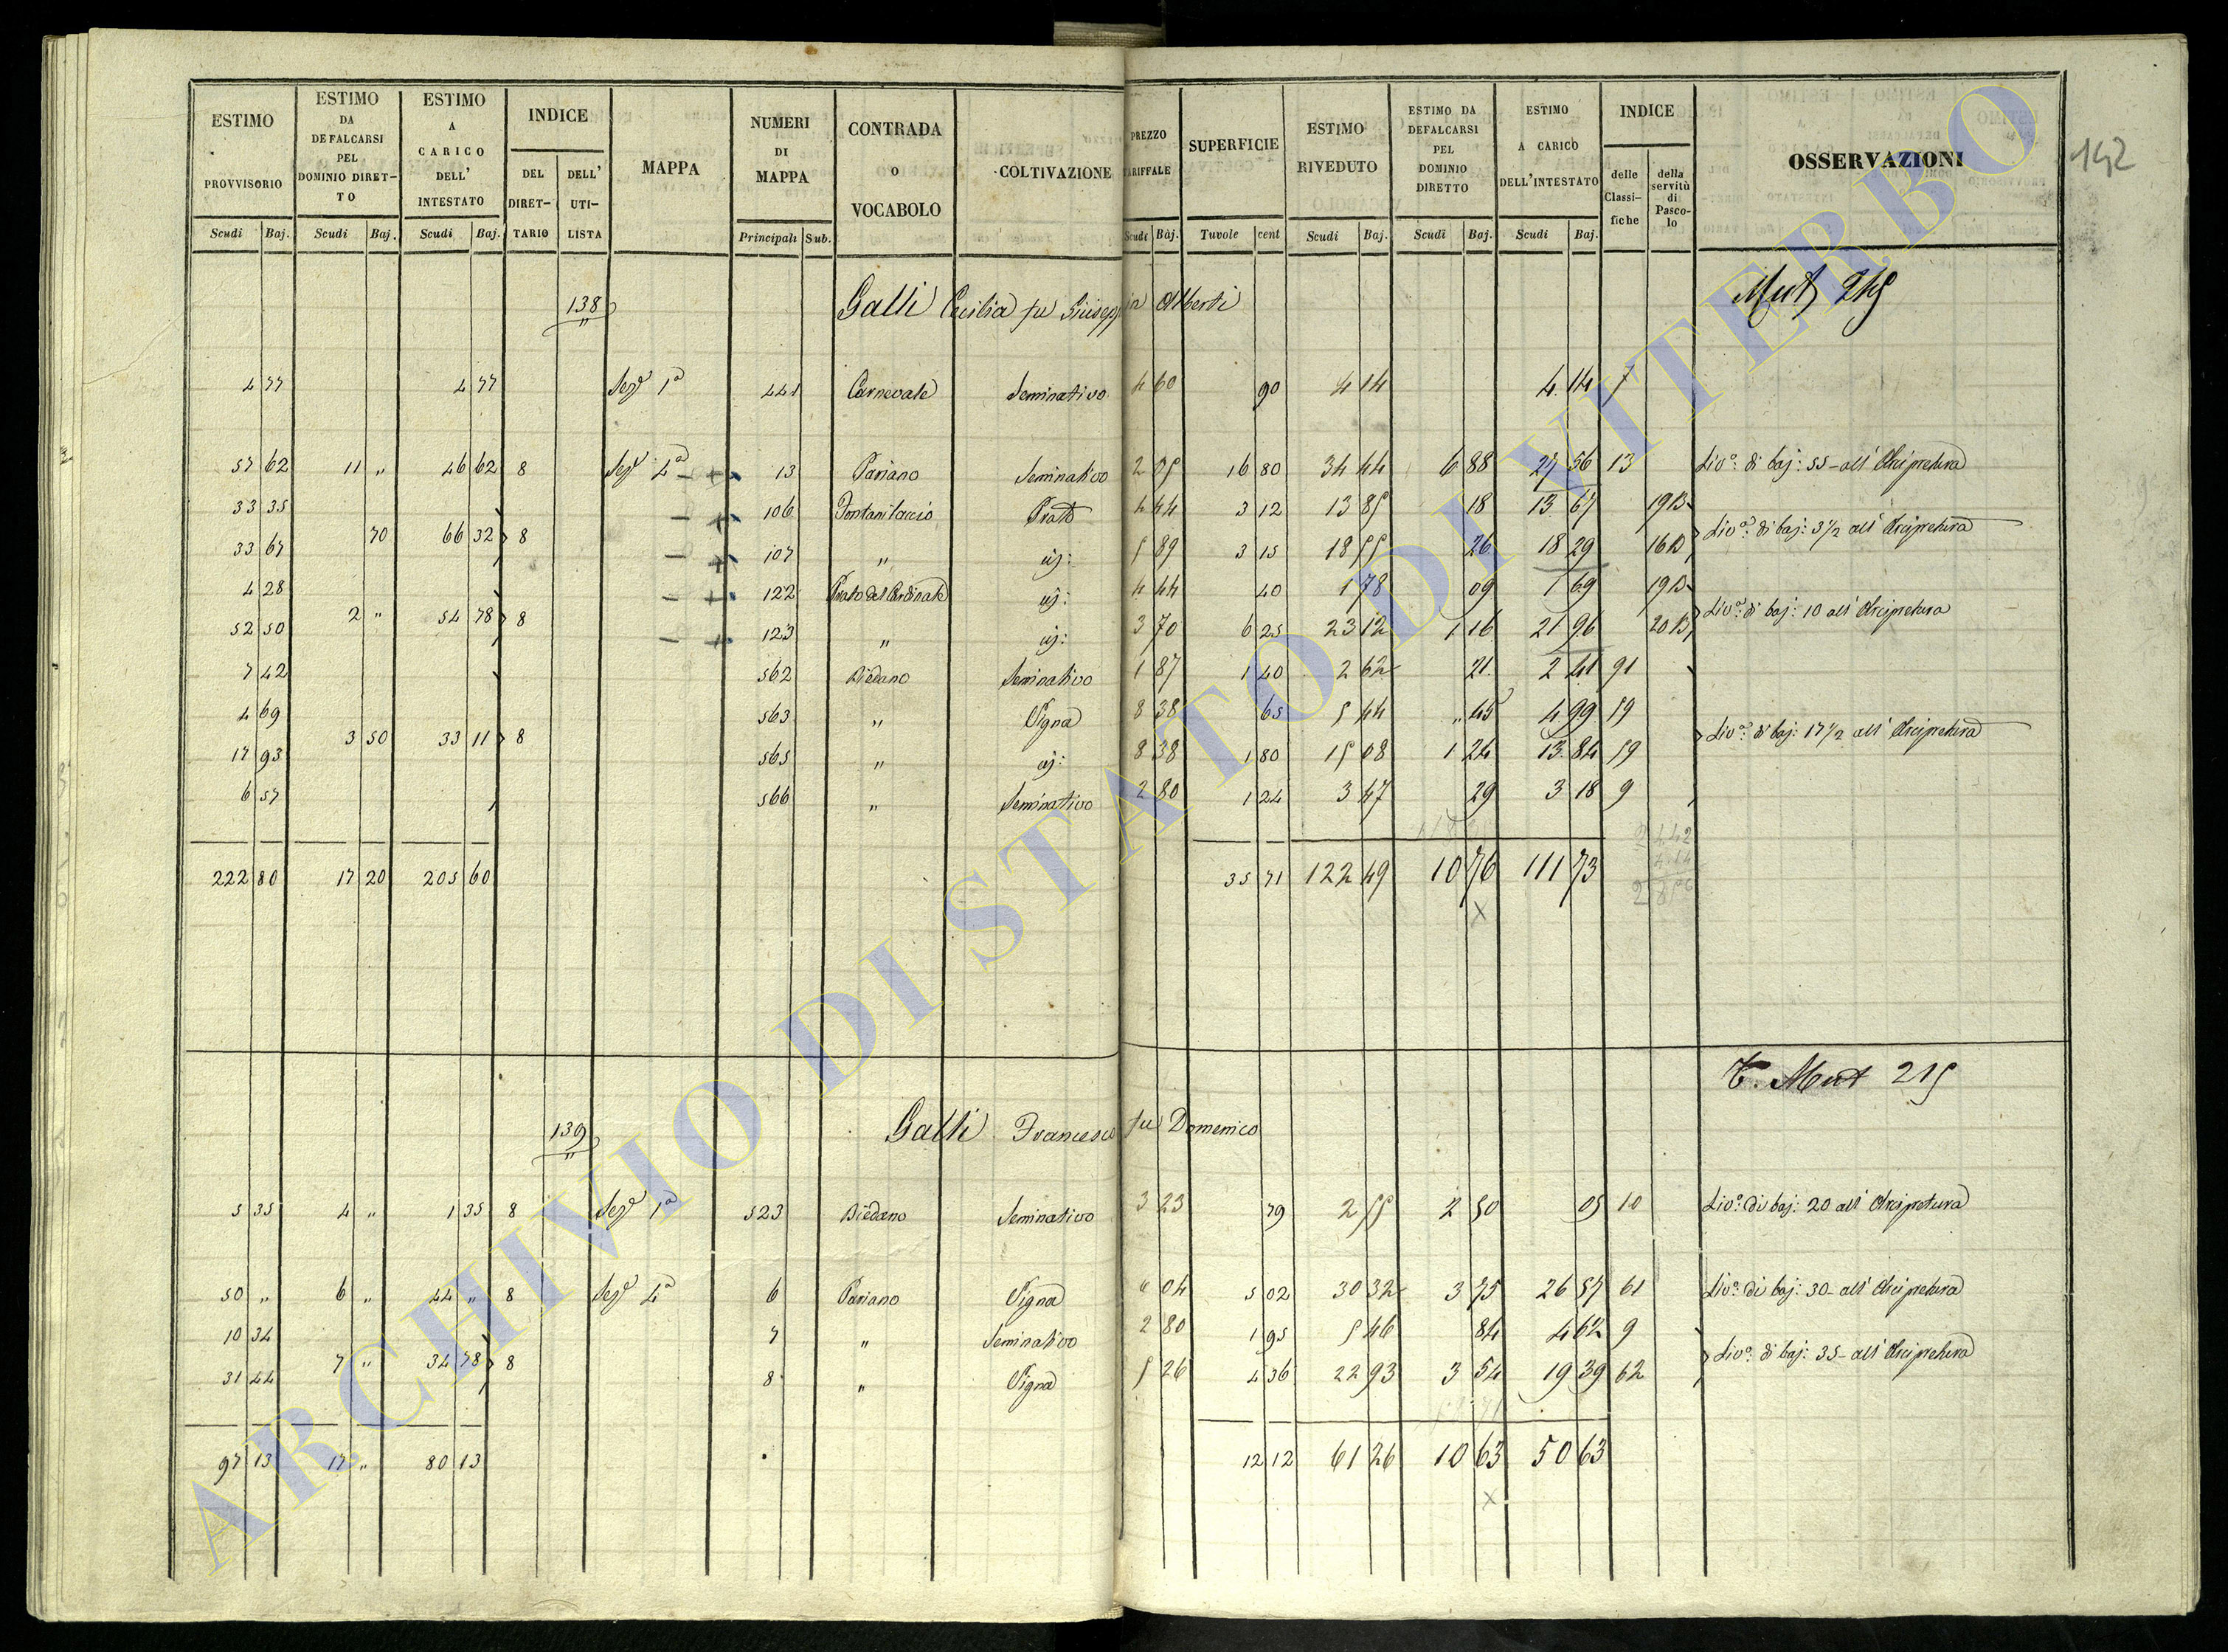 ESTIMO PROVVISORIO
ESTIMO DA DEFALCARSI PEL DOMINIO DIRETTO
ESTIMO A CARICO DELL' INTESTATO
INDICE
DEL DIRETTARIO
DELL' UTILISTA
MAPPA
NUMERI DI MAPPA
CONTRADA o VOCABOLO
COLTIVAZIONE
PREZZO TARIFFALE
SUPERFICIE
ESTIMO RIVEDUTO
ESTIMO DA DEFALCARSI PEL DOMINIO DIRETTO
ESTIMO A CARICO DELL'INTESTATO
INDICE
delle Classifiche
della servitù di Pascolo
OSSERVAZIONI
142
Scudi Baj. Scudi Baj. Scudi Baj. Principali Sub. Scudi Baj. Tavole cent Scudi Baj. Scudi Baj. Scudi Baj.
138 Galli Cecilia fu Giusepp in Alberti Mut 215
4 77 4 77 Seze 1a 441 Carnevale Seminativo 4 60 90 4 14 4 14 7
57 62 11 " 46 62 8 Seze 4a 13 Pariano Seminativo 2 05 16 80 34 44 6 88 27 56 13 Livo: di baj: 55 - all' Arcipretura
33 35 106 Fontanilaccio Prato 4 44 3 12 13 85 18 13 67 19B
70 66 32 8 Livo: di baj: 3 1/2 all' Arcipretura
33 67 107 " id: 5 89 3 15 18 55 26 18 29 16B
4 28 122 Prato del Cardinale id: 4 44 40 1 78 09 1 69 19B
2 " 54 78 8 Livo: di baj: 10 all' Arcipretura
52 50 123 " id: 3 70 6 25 23 12 1 16 21 96 20B
7 42 562 Biedano Seminativo 1 87 1 40 2 62 21 2 41 91
4 69 563 " Vigna 8 38 65 5 44 " 45 4 99 59
3 50 33 11 8 Livo: di baj: 17 1/2 all' Arcipretura
17 93 565 " id: 8 38 1 80 15 08 1 24 13 84 59
6 57 566 " Seminativo 2 80 1 24 3 47 29 3 18 9
222 80 17 20 205 60 35 71 122 49 10 76 111 73
x
T. Mut 215
139 Galli Francesco fu Domenico
5 35 4 " 1 35 8 Seze 1a 523 Biedano Seminativo 3 23 79 2 55 2 50 05 10 Livo: di baj: 20 all' Arcipretura
50 " 6 " 44 " 8 Seze 4a 6 Pariano Vigna 6 04 5 02 30 32 3 75 26 57 61 Livo: di baj: 30 - all' Arcipretura
10 34 7 " Seminativo 2 80 1 95 5 46 84 4 62 9
7 " 34 78 8 Livo: di baj: 35 - all' Arcipretura
31 44 8 " Vigna 5 26 4 36 22 93 3 54 19 39 62
97 13 17 " 80 13 12 12 61 26 10 63 50 63
x
ARCHIVIO DI STATO DI VITERBO